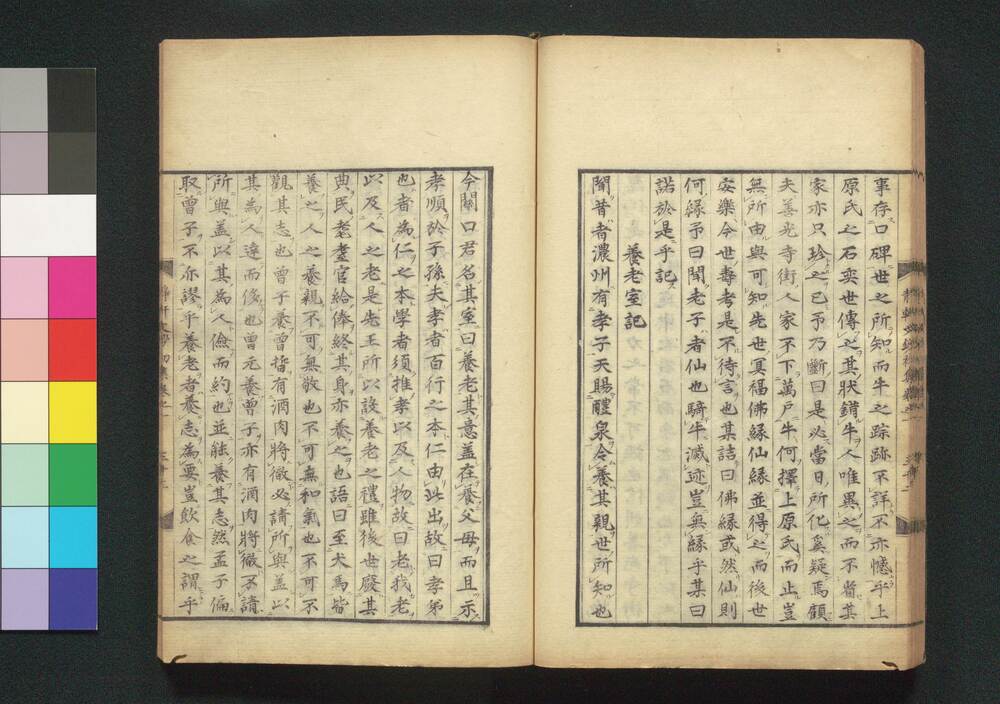 事存口碑世之所知而牛之踪跡不詳不亦憾乎上
原氏之石奕世傳之其狀錯牛人唯異之而不省其
家亦只珍之已予乃斷曰是必當日所化奚疑焉顧
夫善光寺街人家不下萬戶牛何擇上原氏而止豈
無所由與可知先世冥福佛緣仙緣並得之而後世
安樂今世壽考是不待言也某詰曰佛緣或然仙則
何緣予曰聞老子者仙也騎牛滅迹豈無緣乎某曰
諾於是乎記
養老室記
聞昔者濃州有孝子天賜醴泉令養其親世所知也
今關口君名其室曰養老其意蓋在養父母而且示
孝順於子孫夫孝者百行之本仁由此出故曰孝弟
也者為仁之本學者須推孝以及人物故曰老我老
以及人之老是先王所以設養老之禮雖後世廢其
典民耄耋官給俸終其身亦養之也語曰至犬馬皆
養之人之養親不可無敬也不可無和氣也不可不
觀其志也曾子養曾晳有酒肉將徹必請所與蓋以
其為人達而儉也曾元養曾子亦有酒肉將徹不請
所與蓋以其為人儉而約也並能養其志然孟子偏
取曾子不亦謬乎養老者養志為要豈飲食之謂乎